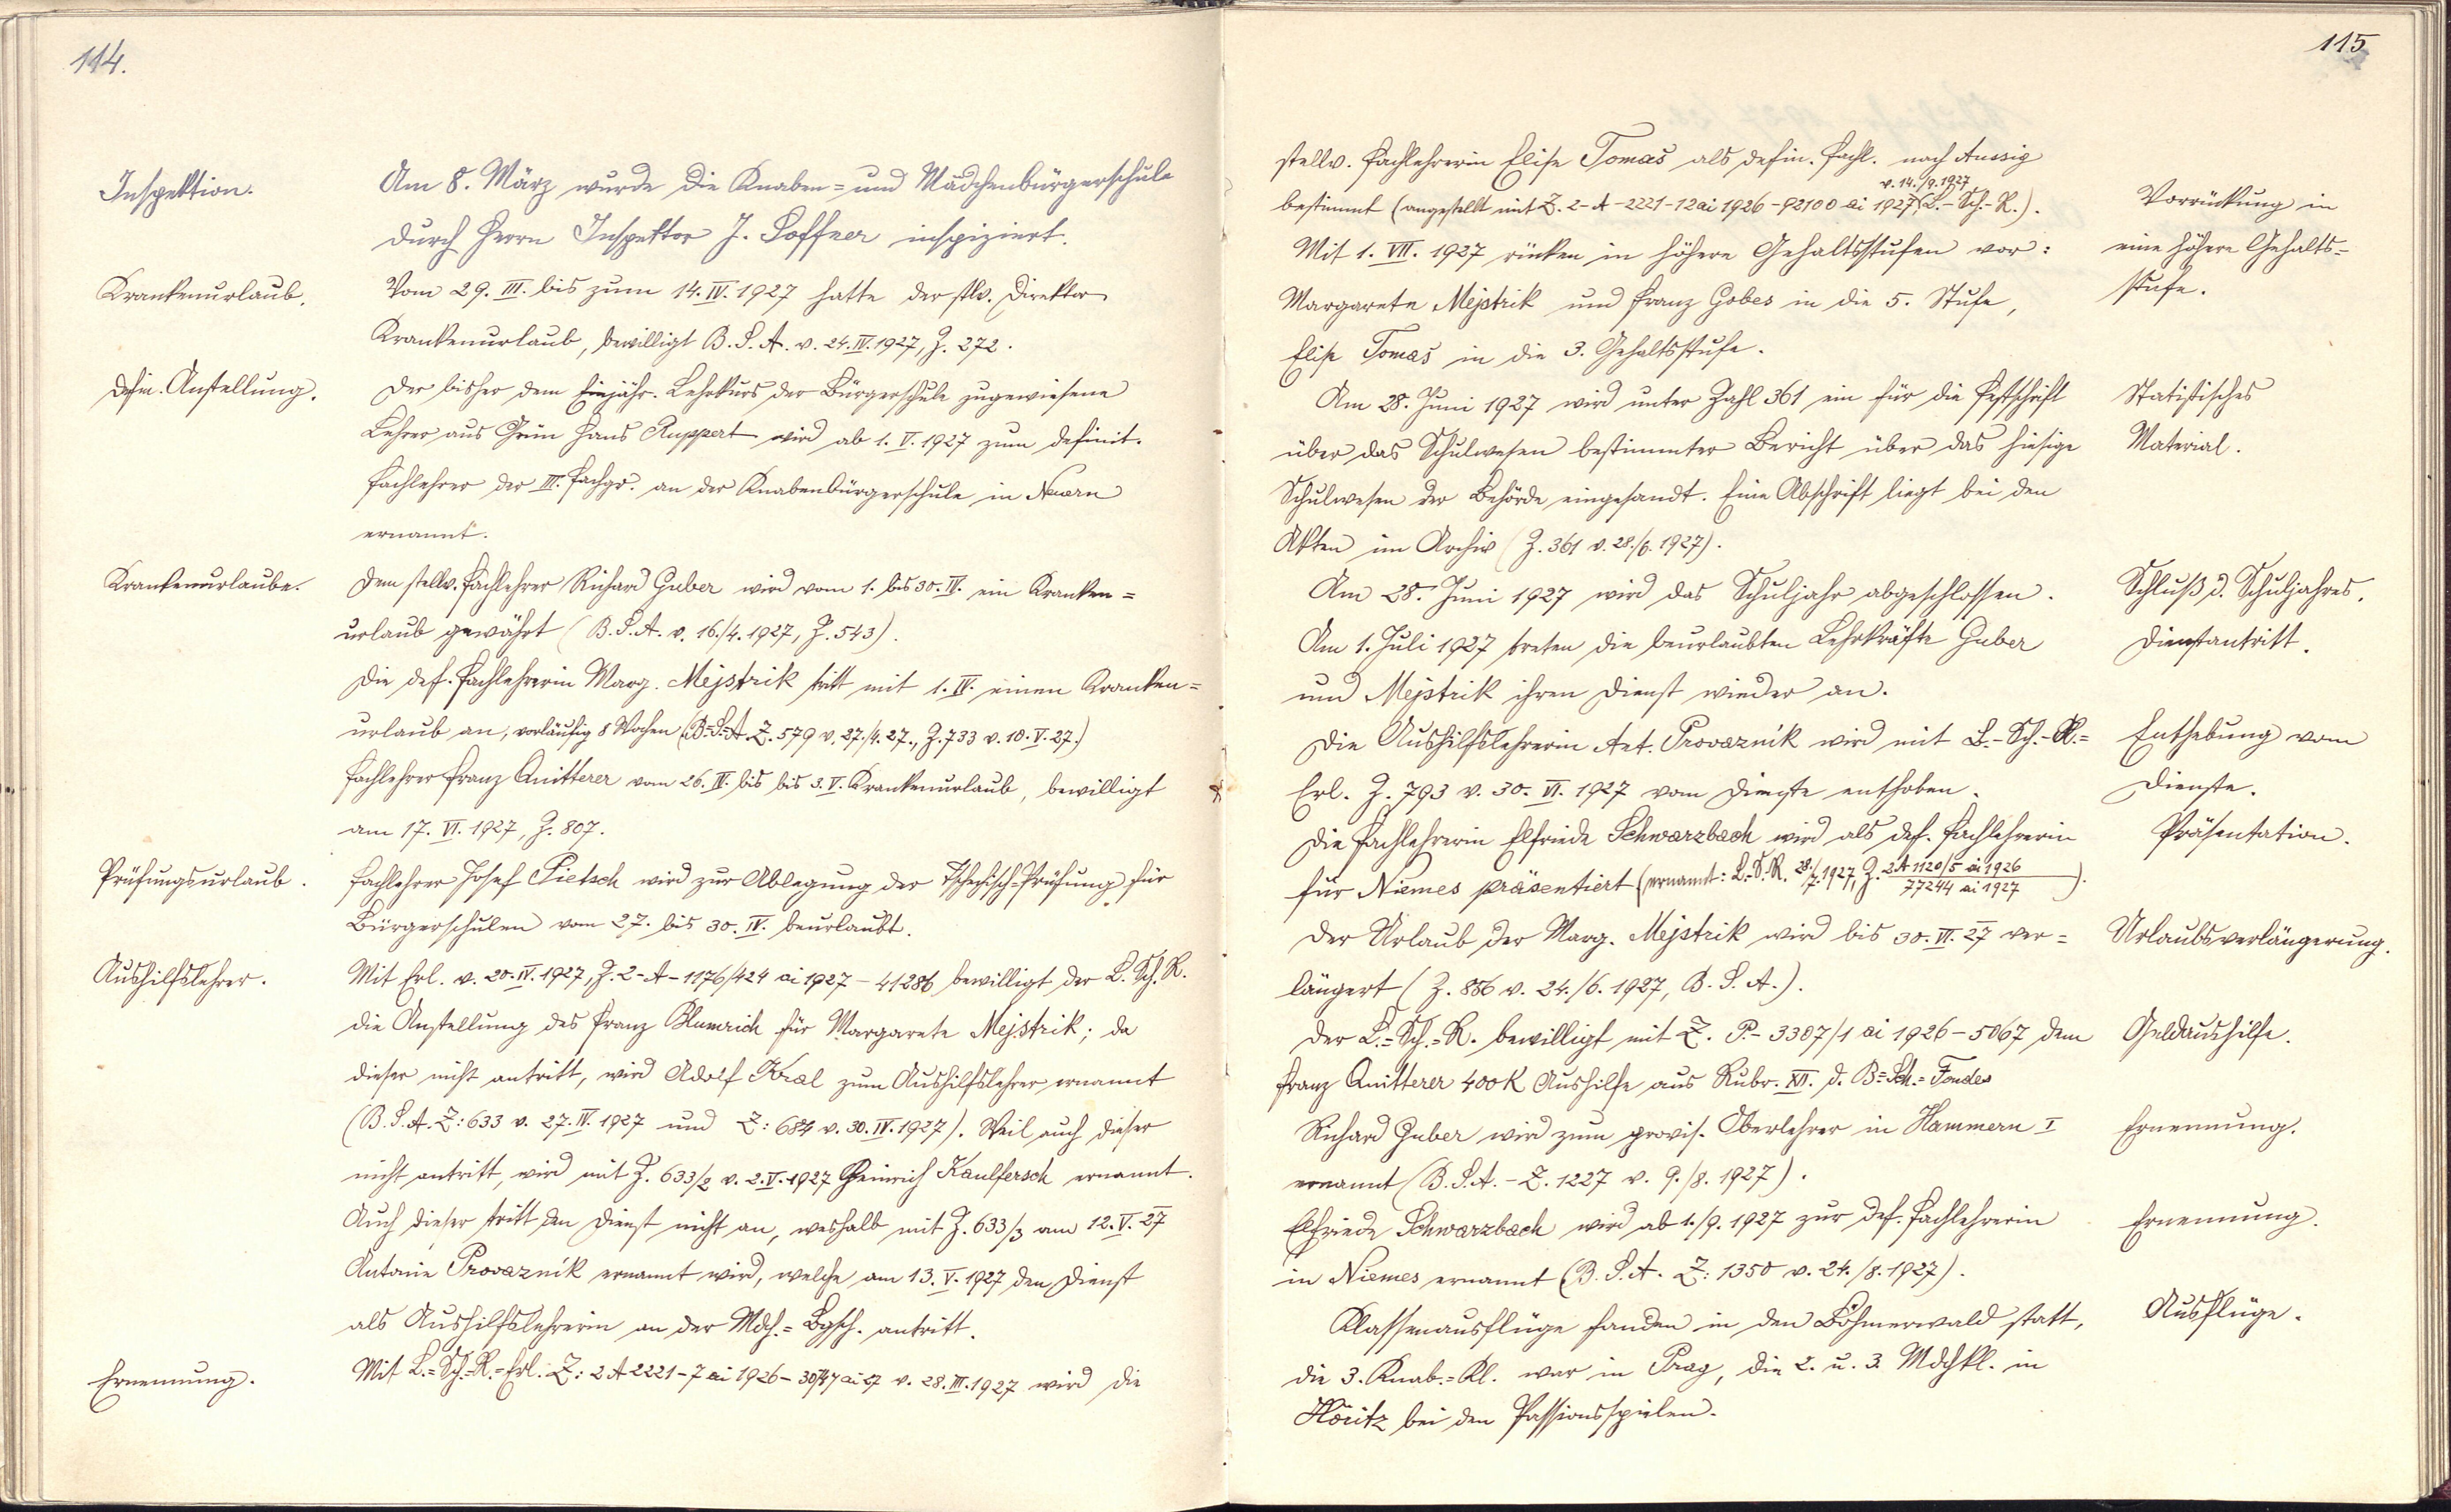 114.
Inspektion.
Am 8. März wurde die Knaben= und Mädchenbürgerschule
durch Herrn Inspektor J. Soffner inspiziert.
Krankenurlaub.
Vom 29. III. bis zum 14. IV. 1927 hatte der stlv. Direktor
Krankenurlaub, bewilligt B. S. A. v. 24. IV. 1927, Z. 272.
Defin. Anstellung.
Der bisher dem Einjähr. Lehrkurs der Bürgerschule zugewiesene
Lehrer aus Grün Hans Ruppert wird ab 1. V. 1927 zum definit.
Fachlehrer der III. Fachgr. an der Knabenbürgerschule in Neuern
ernannt.
Krankenurlaube.
Dem stellv. Fachlehrer Richard Huber wird vom 1. bis 30. IV. ein Kranken=
urlaub gewährt (B. S. A. v. 16./4. 1927, Z. 543).
Die def. Fachlehrerin Marg. Mejstrik tritt mit 1. IV. einen Kranken=
urlaub an, vorläufig 8 Wochen (B.=S.=A. Z. 579 v. 27./4. 27., Z. 733 v. 10. V. 27.)
Fachlehrer Franz Quitterer vom 26. IV. bis bis 3. V. Krankenurlaub, bewilligt
am 17. VI. 1927, Z. 807.
Prüfungsurlaub.
Fachlehrer Josef Pietsch wird zur Ablegung der Tschechisch=Prüfung für
Bürgerschulen vom 27. bis 30. IV. beurlaubt.
Aushilfslehrer.
Mit Erl. v. 20. IV. 1927, Z. 2-A-1176/424 ai 1927 - 41286 bewilligt der L. Sch. R.
die Anstellung des Franz Blumrich für Margarete Mejstrik; da
dieser nicht antritt, wird Adolf Kral zum Aushilfslehrer ernannt
(B. S. A. Z: 633 v. 27. IV. 1927 und Z: 684 v. 30. IV. 1927). Weil auch dieser
nicht antritt, wird mit Z. 633/2 v. 2. V. 1927 Heinrich Kaulfersch ernannt.
Auch dieser tritt den Dienst nicht an, weshalb mit Z. 633/3 am 12. V. 27
Antonie Provaznik ernannt wird, welche am 13. V. 1927 den Dienst
als Aushilfslehrerin an der Mdch.= Bgsch. antritt.
Ernennung.
Mit L.=Sch.=R.=Erl. Z: 2 A 2221-7 ai 1926 - ai 27 v. 28. III. 1927 wird die
115
stellv. Fachlehrerin Elise Tomas als defin. Fachl. nach Aussig
v. 14./9. 1927
bestimmt (angestellt mit Z. 2-A-2221-12 ai 1926-92100 ai 1927 (L.-Sch.-R.).
Vorrückung in
eine höhere Gehalts=
stufe.
Mit 1. VII. 1927 rücken in höhere Gehaltsstufen vor:
Margarete Mejstrik und Franz Gobes in die 5. Stufe,
Elise Tomas in die 3. Gehaltsstufe.
Statistisches
Material.
Am 28. Juni 1927 wird unter Zahl 361 ein für die Festschrift
über das Schulwesen bestimmter Bericht über das hiesige
Schulwesen der Behörde eingesandt. Eine Abschrift liegt bei den
Akten im Archiv (Z. 361 v. 28./6. 1927).
Schluß d. Schuljahres.
Am 28. Juni 1927 wird das Schuljahr abgeschlossen.
Dienstantritt.
Am 1. Juli 1927 treten die beurlaubten Lehrkräfte Huber
und Mejstrik ihren Dienst wieder an.
Enthebung vom
Dienste.
Die Aushilfslehrerin Ant. Provaznik wird mit L.-Sch.-R.=
Erl. Z. 793 v. 30. VI. 1927 vom Dienste enthoben.
Präsentation.
Die Fachlehrerin Elfriede Schwarzbach wird als def. Fachlehrerin
für Niemes präsentiert (ernannt: L.-S. R. 28./7. 1927, Z. 2 A 1120/5 ai 1926
77244 ai 1927).
Urlaubsverlängerung.
Der Urlaub der Marg. Mejstrik wird bis 30. VI. 27 ver=
längert (Z. 886 v. 24./6. 1927, B. S. A.).
Geldaushilfe.
Der L.=Sch.=R. bewilligt mit Z. P.-3307/1 ai 1926-5067 dem
Franz Quitterer 400 K Aushilfe aus Rubr. XII. d. B=Sch.=Fondes
Ernennung.
Richard Huber wird zum provis. Oberlehrer in Hammern I
ernannt (B. S. A. - Z. 1227 v. 9./8. 1927).
Ernennung.
Elfriede Schwarzbach wird ab 1./9. 1927 zur def. Fachlehrerin
in Niemes ernannt (B. S. A. Z: 1350 v. 24./8. 1927).
Ausflüge.
Klassenausflüge fanden in den Böhmerwald statt,
die 3. Knab.=Kl. war in Prag, die 2. u. 3. Mdchkl. in
Höritz bei den Passionsspielen.